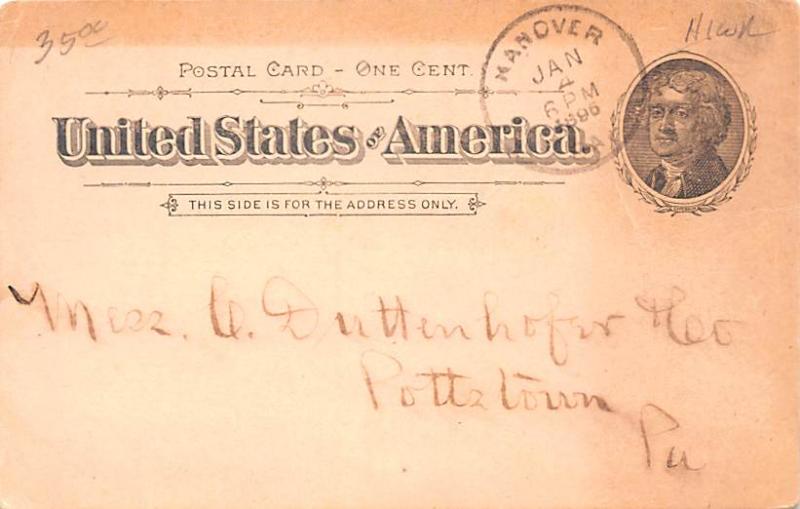 35⁰⁰
POSTAL CARD - ONE CENT.
United States of America.
THIS SIDE IS FOR THE ADDRESS ONLY.
HANOVER
JAN
4
6 PM
1896
Mess. C. Duttenhofer & Co
Pottstown
Pa